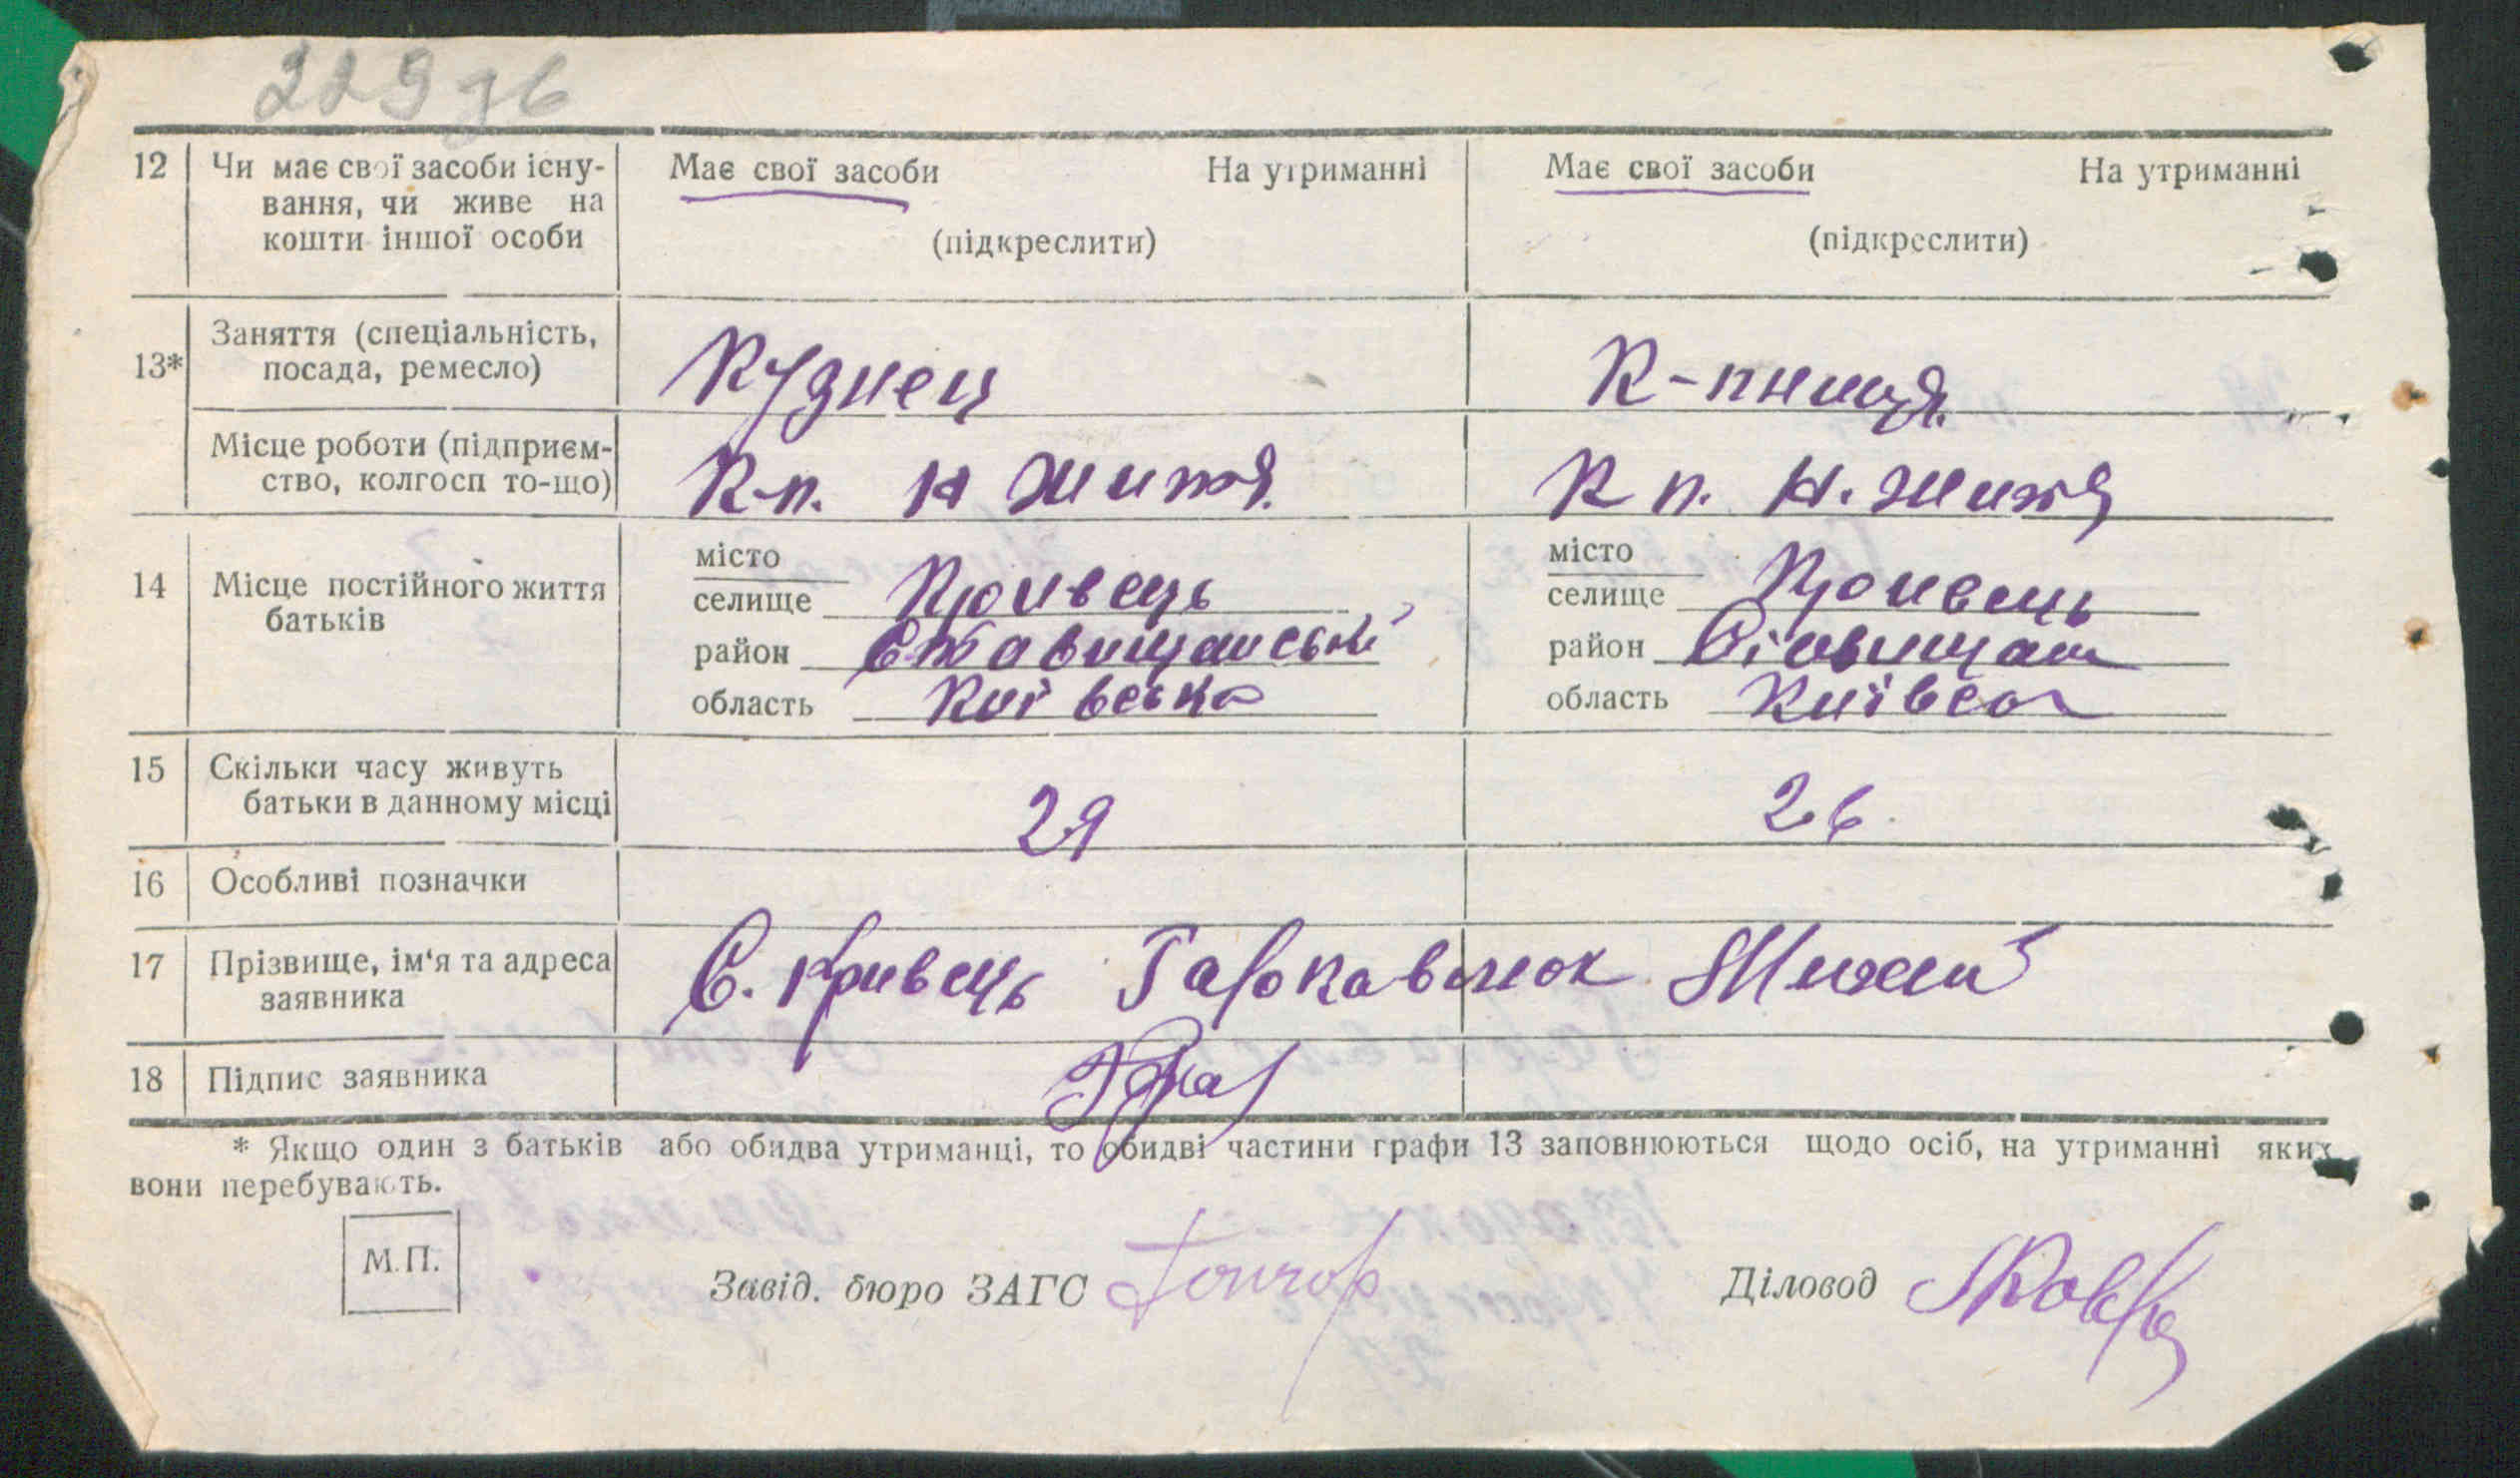 229зв
12 Чи має свої засоби існу- Має свої засоби На утриманні Має свої засоби На утриманні
вання, чи живе на
кошти іншої особи (підкреслити) (підкреслити)
13* Заняття (спеціальність,
посада, ремесло) Кузнец К-пниця
Місце роботи (підприєм-
ство, колгосп то-що) К-п. Н Життя К п. Н. Життя
14 Місце постійного життя
батьків
місто місто
селище Кривець селище Кривець
район Ставищанськ район Ставищан
область Київська область Київсь
15 Скільки часу живуть
батьки в данному місці 29 26
16 Особливі позначки
17 Прізвище, ім'я та адреса
заявника С. Кривець Гаркавлюк
18 Підпис заявника
* Якщо один з батьків або обидва утриманці, то обидві частини графи 13 заповнюються щодо осіб, на утриманні яких
вони перебувають.
М.П.
Завід. бюро ЗАГС Гончар Діловод